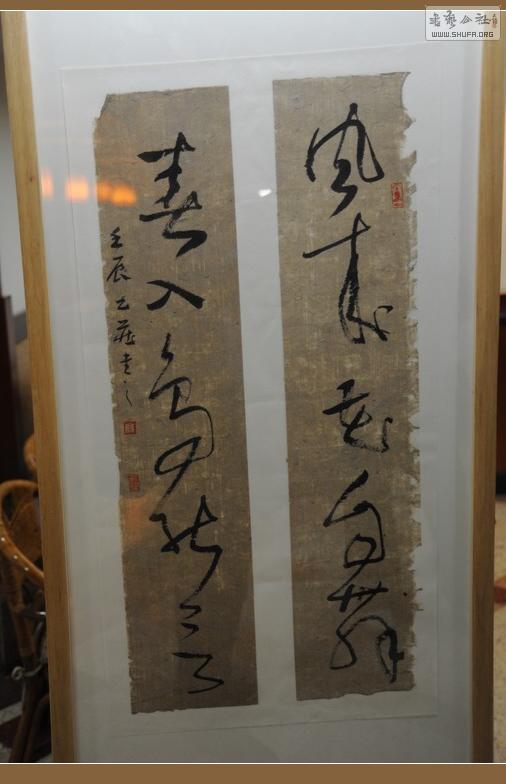 書藝公社
WWW.SHUFA.ORG
风来花自舞
春入鸟能言
壬辰